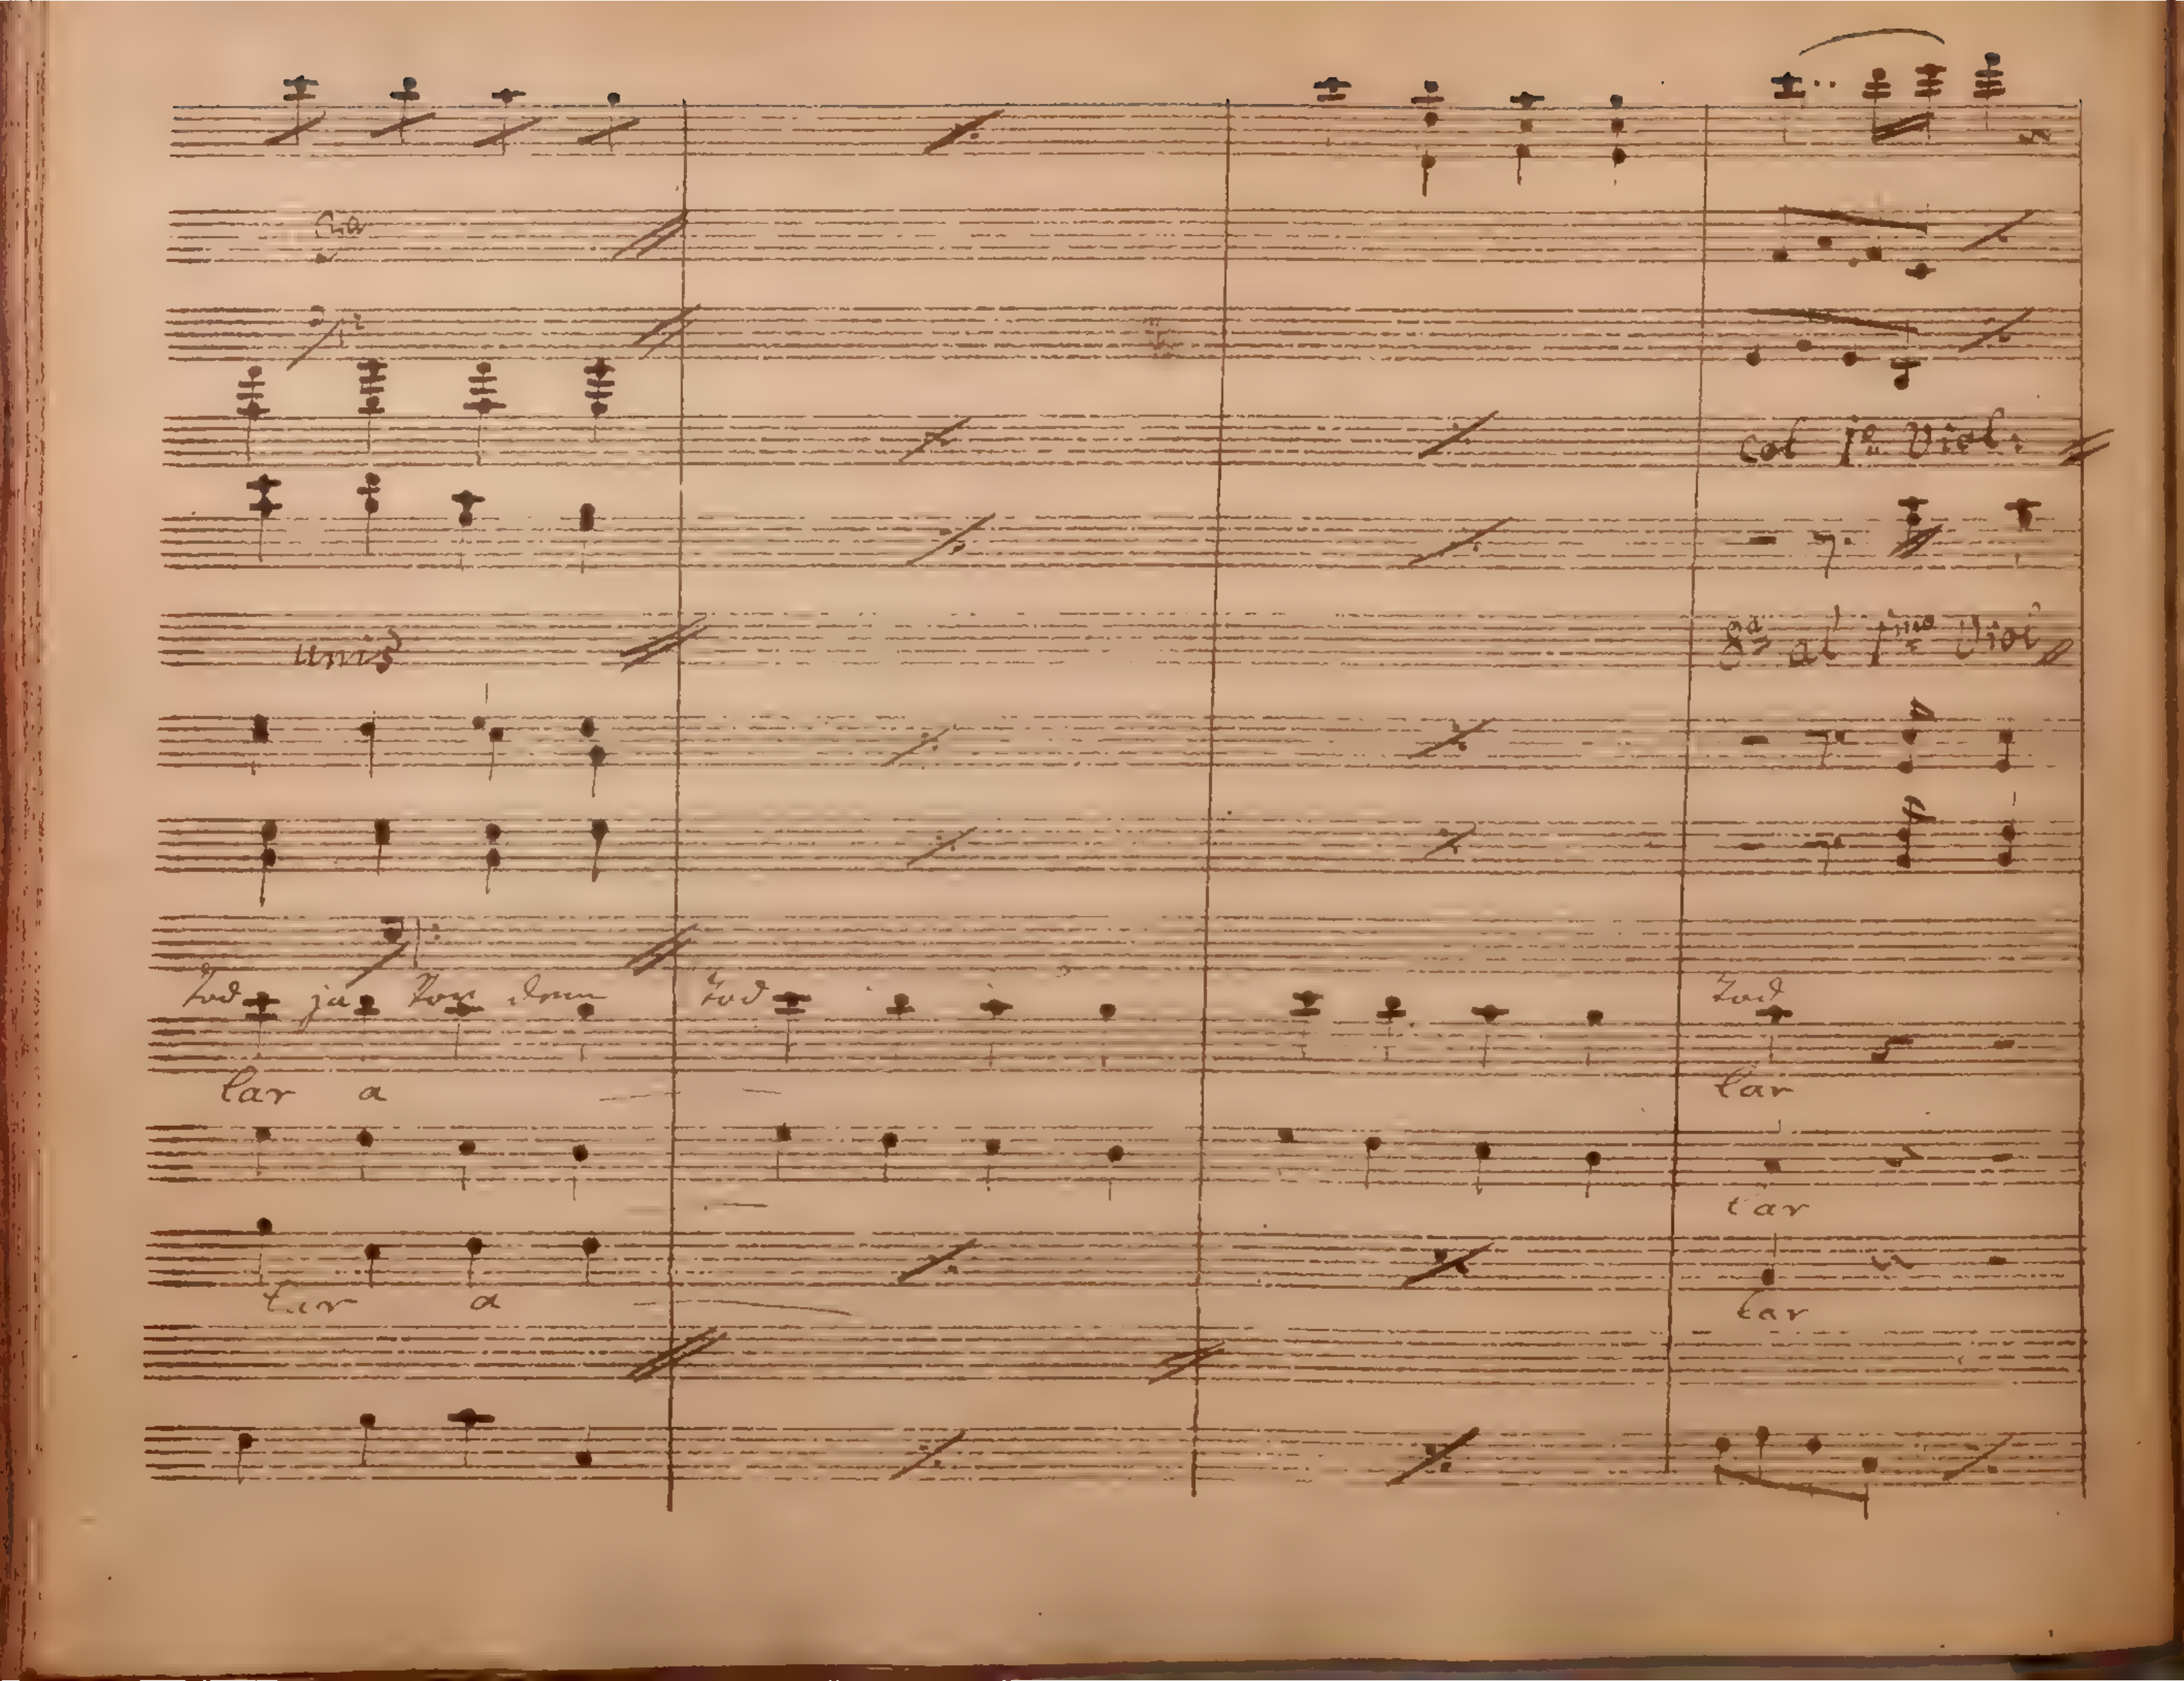 col 1mo Viol:
unis
8va al 1mo Viol
Tod ja von dem Tod Tod
tar a tar
tar
tar a tar